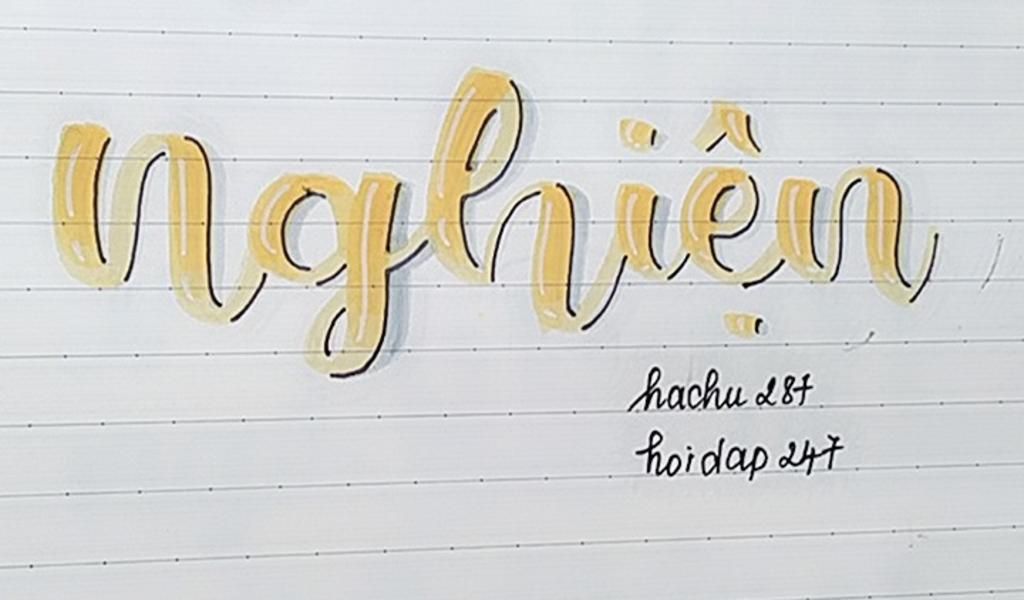 Nghiện
hachu 287
hoidap 247